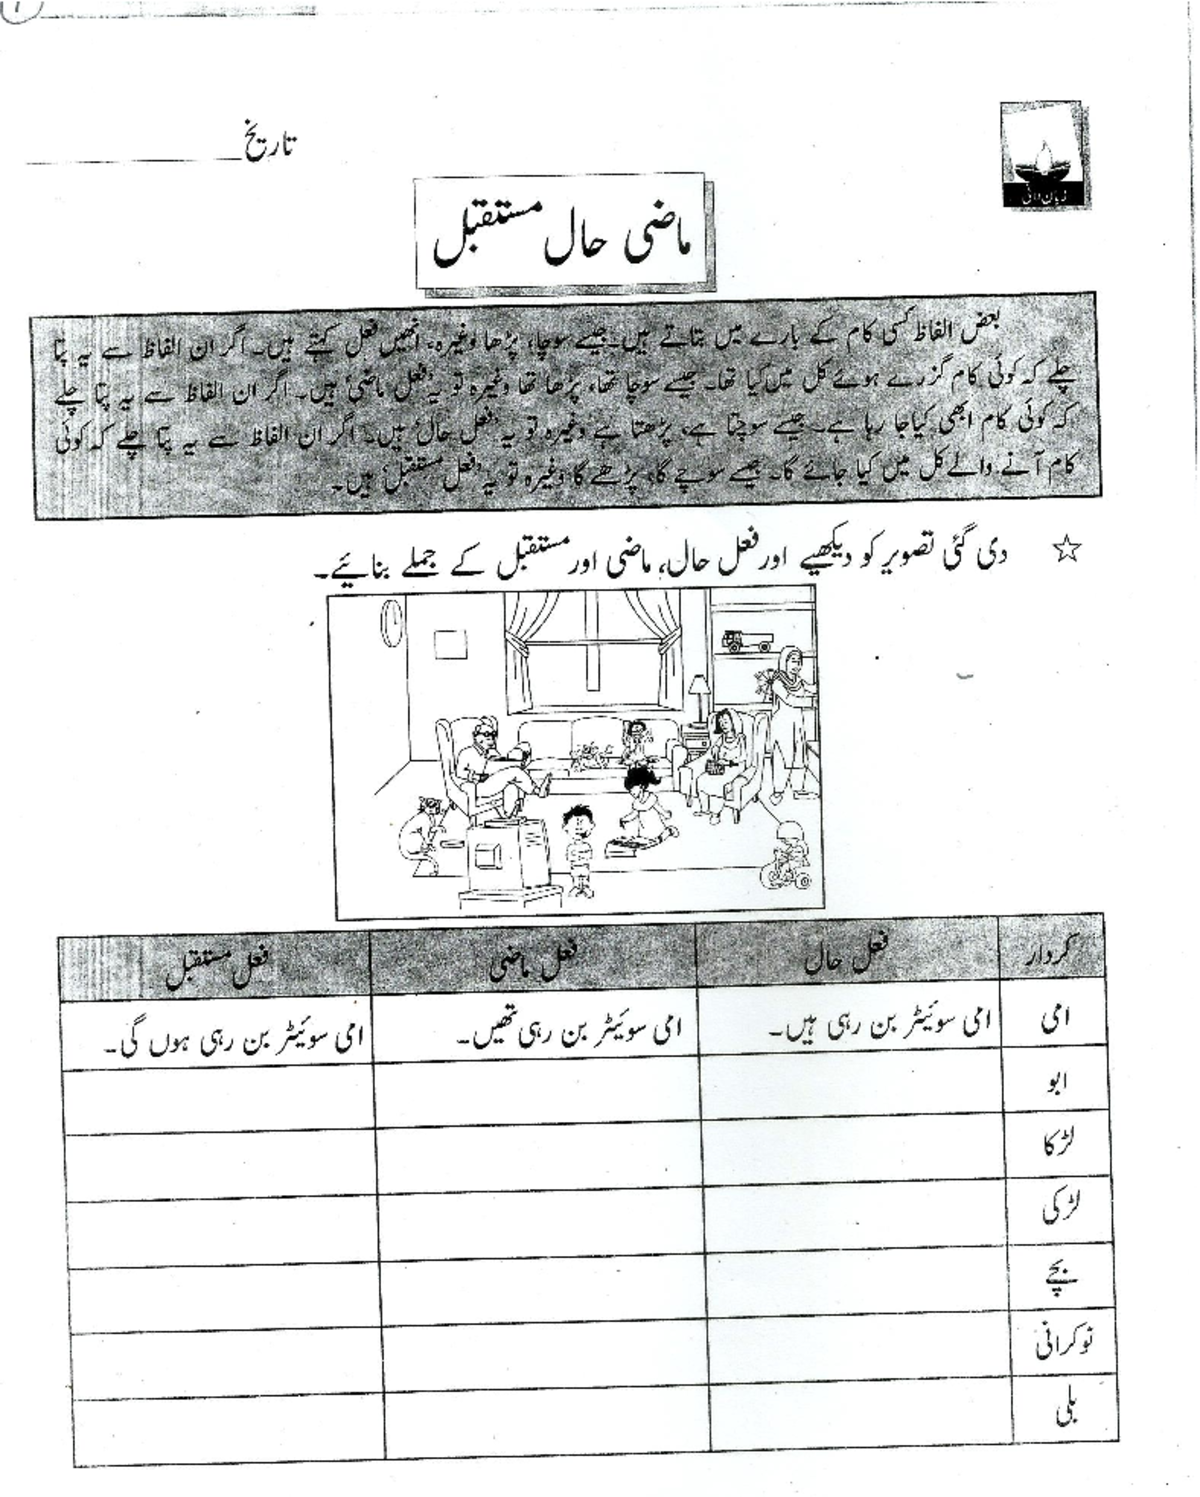 تاریخ
زبان دانی
ماضی حال مستقبل
بعض الفاظ کسی کام کے بارے میں بتاتے ہیں۔ جیسے سوچا، پڑھا وغیرہ، انھیں فعل کہتے ہیں۔ اگر ان الفاظ سے یہ پتا
چلے کہ کوئی کام گزرے ہوئے کل میں کیا تھا۔ جیسے سوچا تھا، پڑھا تھا وغیرہ تو یہ 'فعل ماضی' ہیں۔ اگر ان الفاظ سے یہ پتا چلے
کہ کوئی کام ابھی کیا جا رہا ہے۔ جیسے سوچتا ہے، پڑھتا ہے وغیرہ تو یہ 'فعل حال' ہیں۔ اگر ان الفاظ سے یہ پتا چلے کہ کوئی
کام آنے والے کل میں کیا جائے گا۔ جیسے سوچے گا، پڑھے گا وغیرہ تو یہ 'فعل مستقبل' ہیں۔
☆ دی گئی تصویر کو دیکھیے اور فعل حال، ماضی اور مستقبل کے جملے بنائیے۔
کردار فعل حال فعل ماضی فعل مستقبل
امی امی سوئیٹر بن رہی ہیں۔ امی سوئیٹر بن رہی تھیں۔ امی سوئیٹر بن رہی ہوں گی۔
ابو
لڑکا
لڑکی
بچے
نوکرانی
بلی